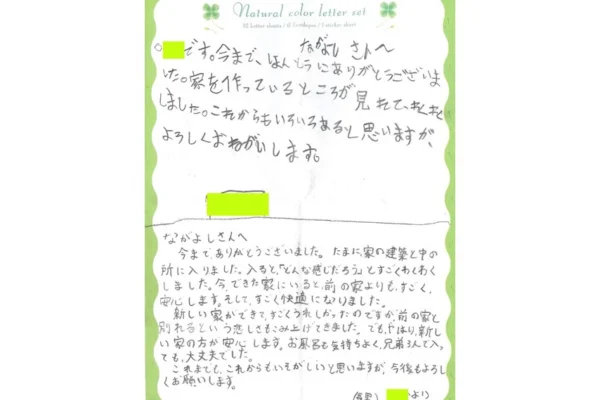 Natural color letter set
ながよし さんへ
です。今まで、ほんとうにありがとうございま
した。家を作っているところが見れて、わくわく
しました。これからもいろいろあると思いますが、
よろしくおねがいします。
ながよしさんへ
今まで、ありがとうございました。たまに、家の建築と中の
所に入りました。入ると、「どんな感じだろう」とすごくわくわく
しました。今、できた家にいると、前の家よりも、すごく、
安心します。そして、すごく快適になりました。
新しい家ができて、すごくうれしかったのですが、前の家と
別れるという悲しさもこみ上げてきました。でも、やはり、新し
い家の方が安心します。お風呂も気持ちよく、兄弟3人で入っ
ても、大丈夫でした。
これまでも、これからもいそがしいと思いますが、今後もよろし
くお願いします。
より